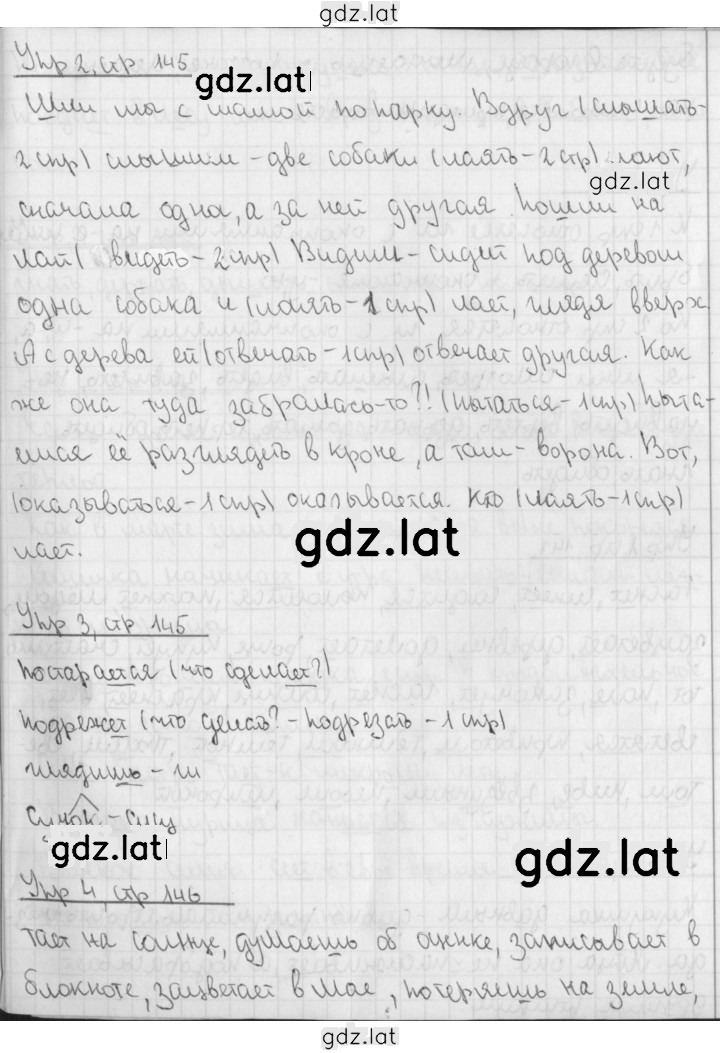 gdz.lat
Упр 2, стр 145
gdz.lat
Шли мы с мамой по парку. Вдруг (слышать-
2 спр) слышим - две собаки (лаять - 2 стр) лают,
gdz.lat
сначала одна, а за ней другая. Пошли на
лай (видеть - 2 спр) Видим - сидит под деревом
одна собака и (лаять - 1 спр) лает, глядя вверх.
А с дерева ей (отвечать - 1 спр) отвечает другая. Как
же она туда забралась-то?! (пытаться - 1 спр) пыта-
емая её разглядеть в кроне, а там - ворона. Вот,
(оказываться - 1 спр) оказывается. Кто (лаять - 1 спр)
лает.
gdz.lat
Упр 3, стр 145
постарается (что сделает?)
подрежет (что сделать? - подрезать - 1 спр)
глядишь - ш
сынок -
gdz.lat
gdz.lat
Упр 4, стр 146
тает на солнце, думаешь об оценке, записывает в
блокноте, зацветает в мае, потеряешь на земле,
gdz.lat